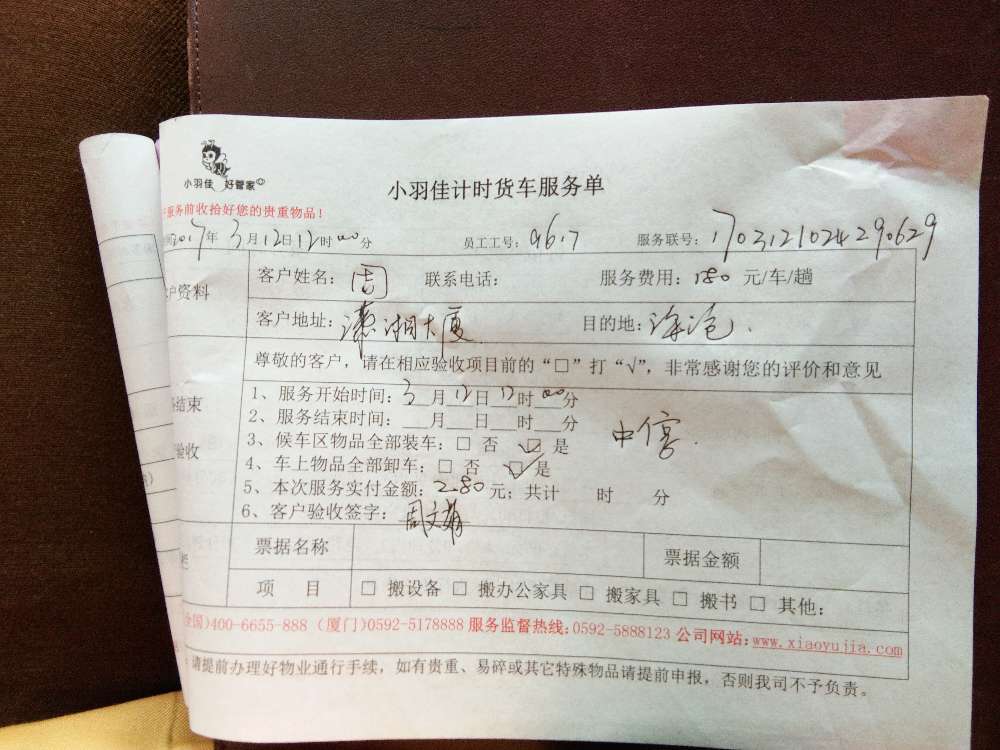 小羽佳 好管家
小羽佳计时货车服务单
服务前收拾好您的贵重物品!
2017年3月12日12时00分 员工工号: 9617 服务联号: 1703121024290629
户资料 客户姓名: 周 联系电话: 服务费用: 180 元/车/趟
客户地址: 潇湘大厦 目的地: 海沧.
尊敬的客户, 请在相应验收项目前的“□”打“√”, 非常感谢您的评价和意见
结束
验收
1、服务开始时间: 3月12日12时00分
2、服务结束时间: 月 日 时 分
3、候车区物品全部装车: □ 否 ☑ 是
4、车上物品全部卸车: □ 否 ☑ 是
5、本次服务实付金额: 280元; 共计 时 分
6、客户验收签字: 周文
票据名称 票据金额
项 目 □ 搬设备 □ 搬办公家具 □ 搬家具 □ 搬书 □ 其他:
全国)400-6655-888 (厦门)0592-5178888 服务监督热线:0592-5888123 公司网站:www.xiaoyujia.com
:请提前办理好物业通行手续, 如有贵重、易碎或其它特殊物品请提前申报, 否则我司不予负责。